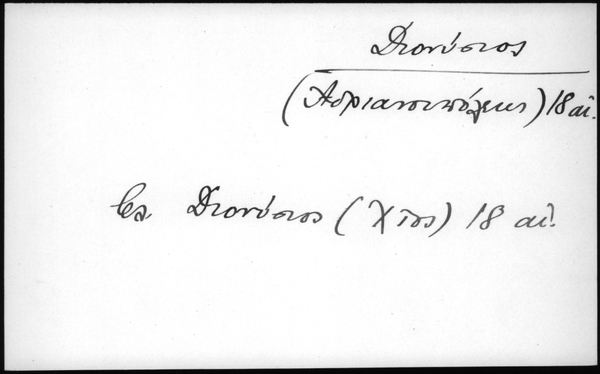 Διονύσιος
(Ἀδριανουπόλεως) 18 αἰ.
Βλ. Διονύσιος (Χίου) 18 αἰ.